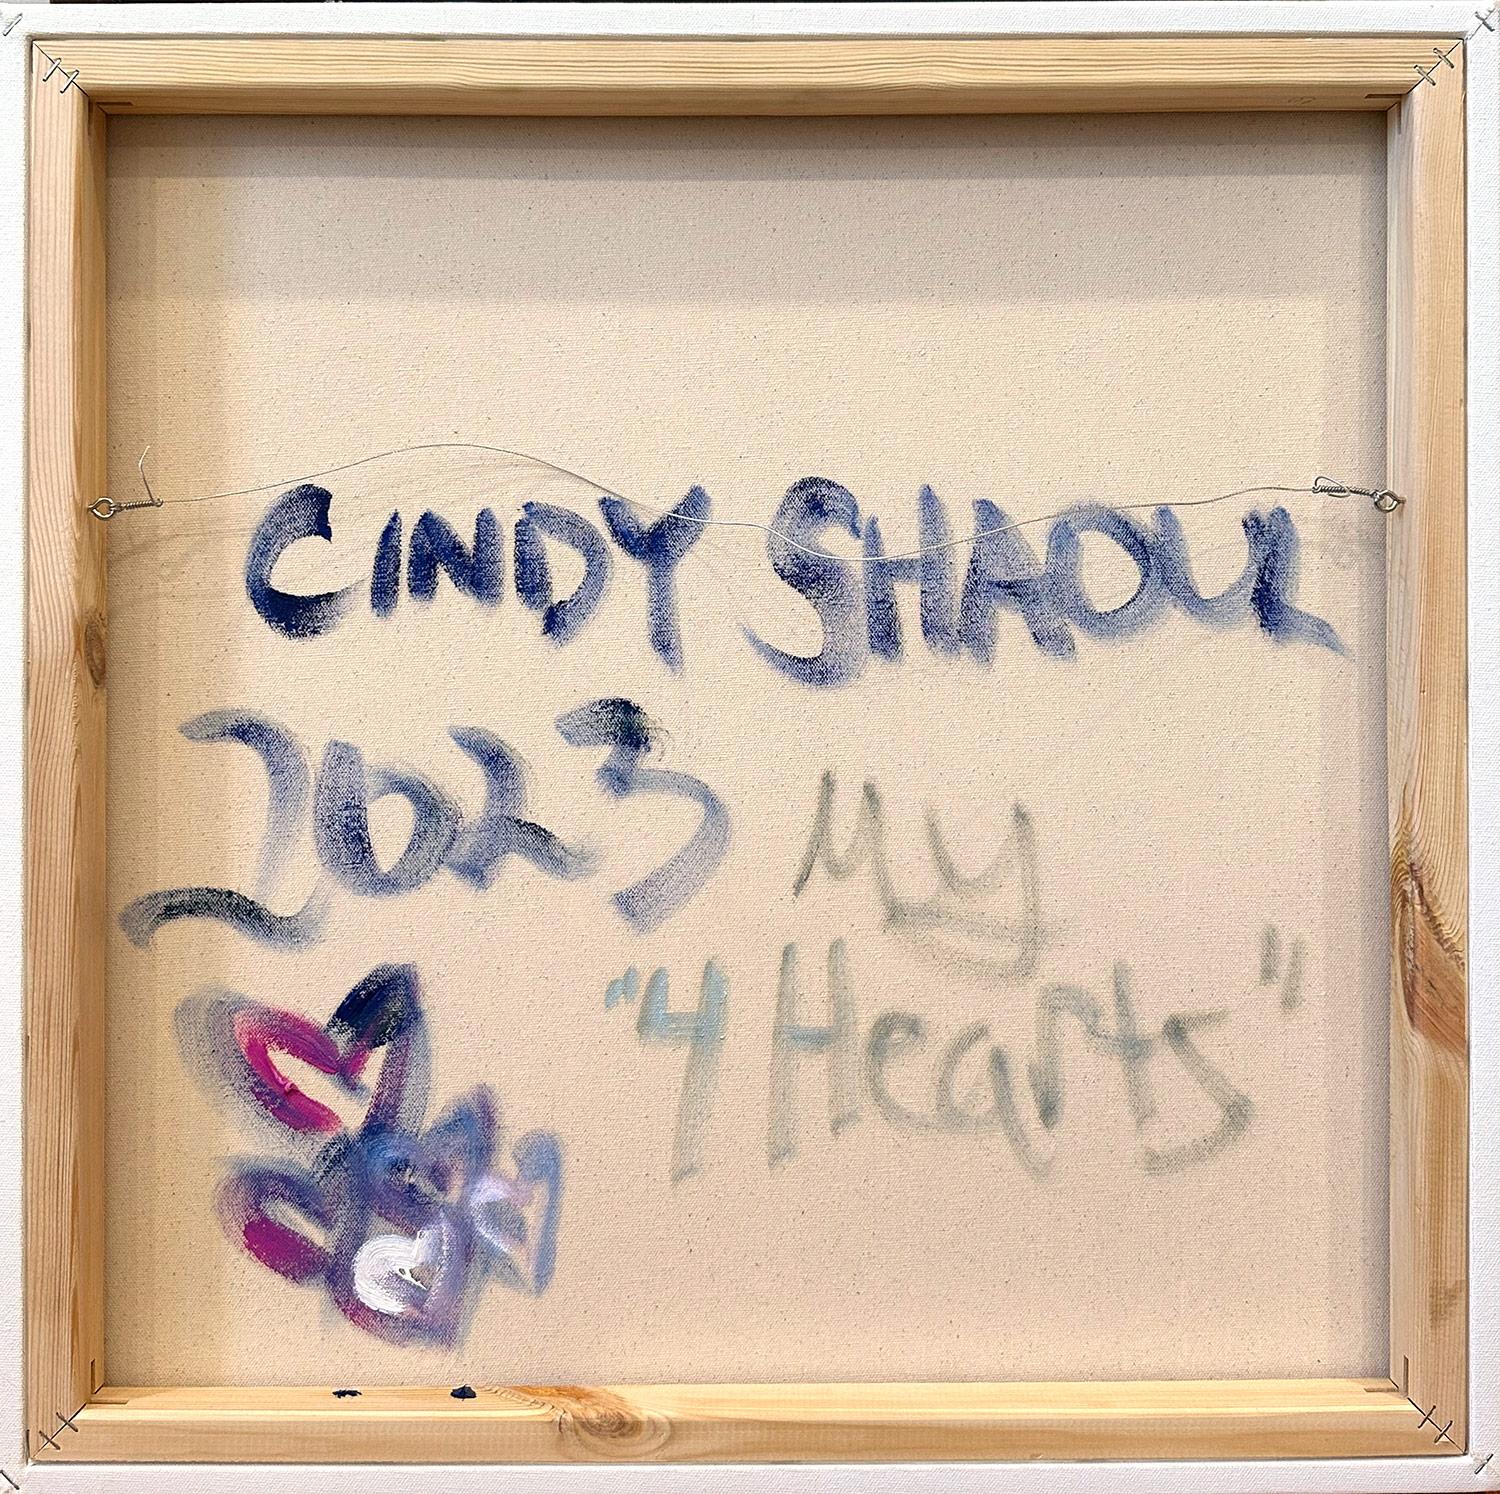 CINDY SHAOUL
2023
My
"4 Hearts"